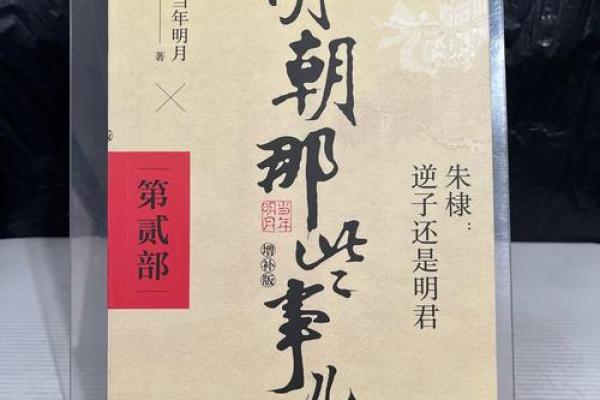 明朝那些事儿
当年明月
著
第贰部
当年
明月
增补版
朱棣：
逆子还是明君